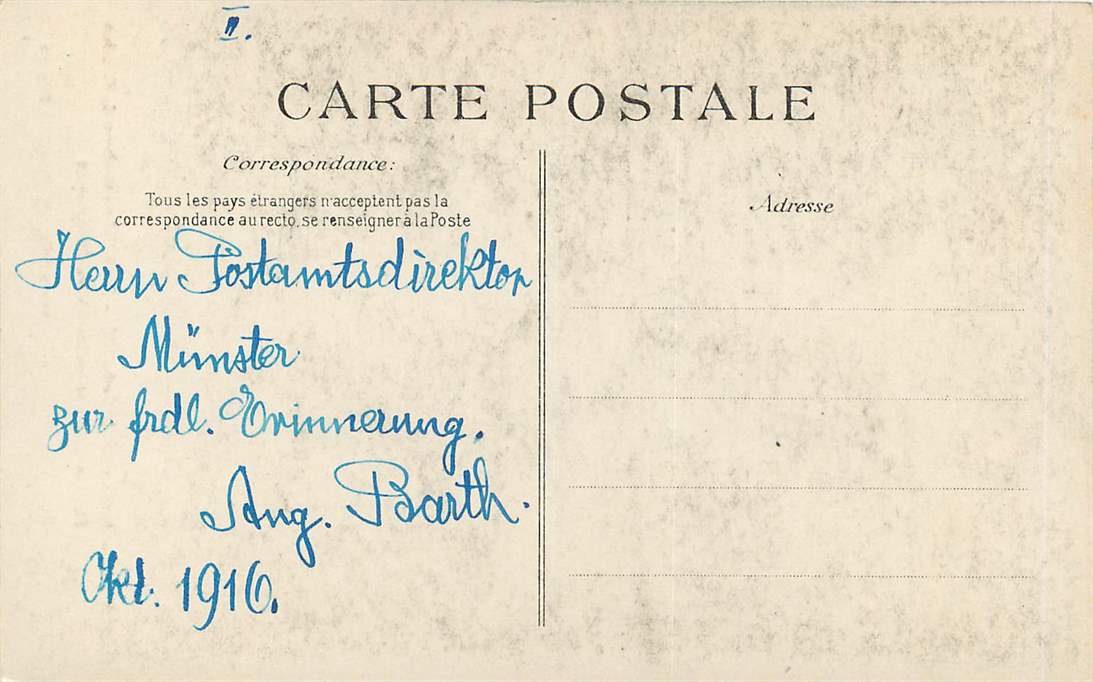 II.
CARTE POSTALE
Correspondance:
Tous les pays étrangers n'acceptent pas la
correspondance au recto, se renseigner à la Poste
Adresse
Herrn Postamtsdirektor
Münster
zur frdl. Erinnerung.
Aug. Barth.
Okt. 1916.